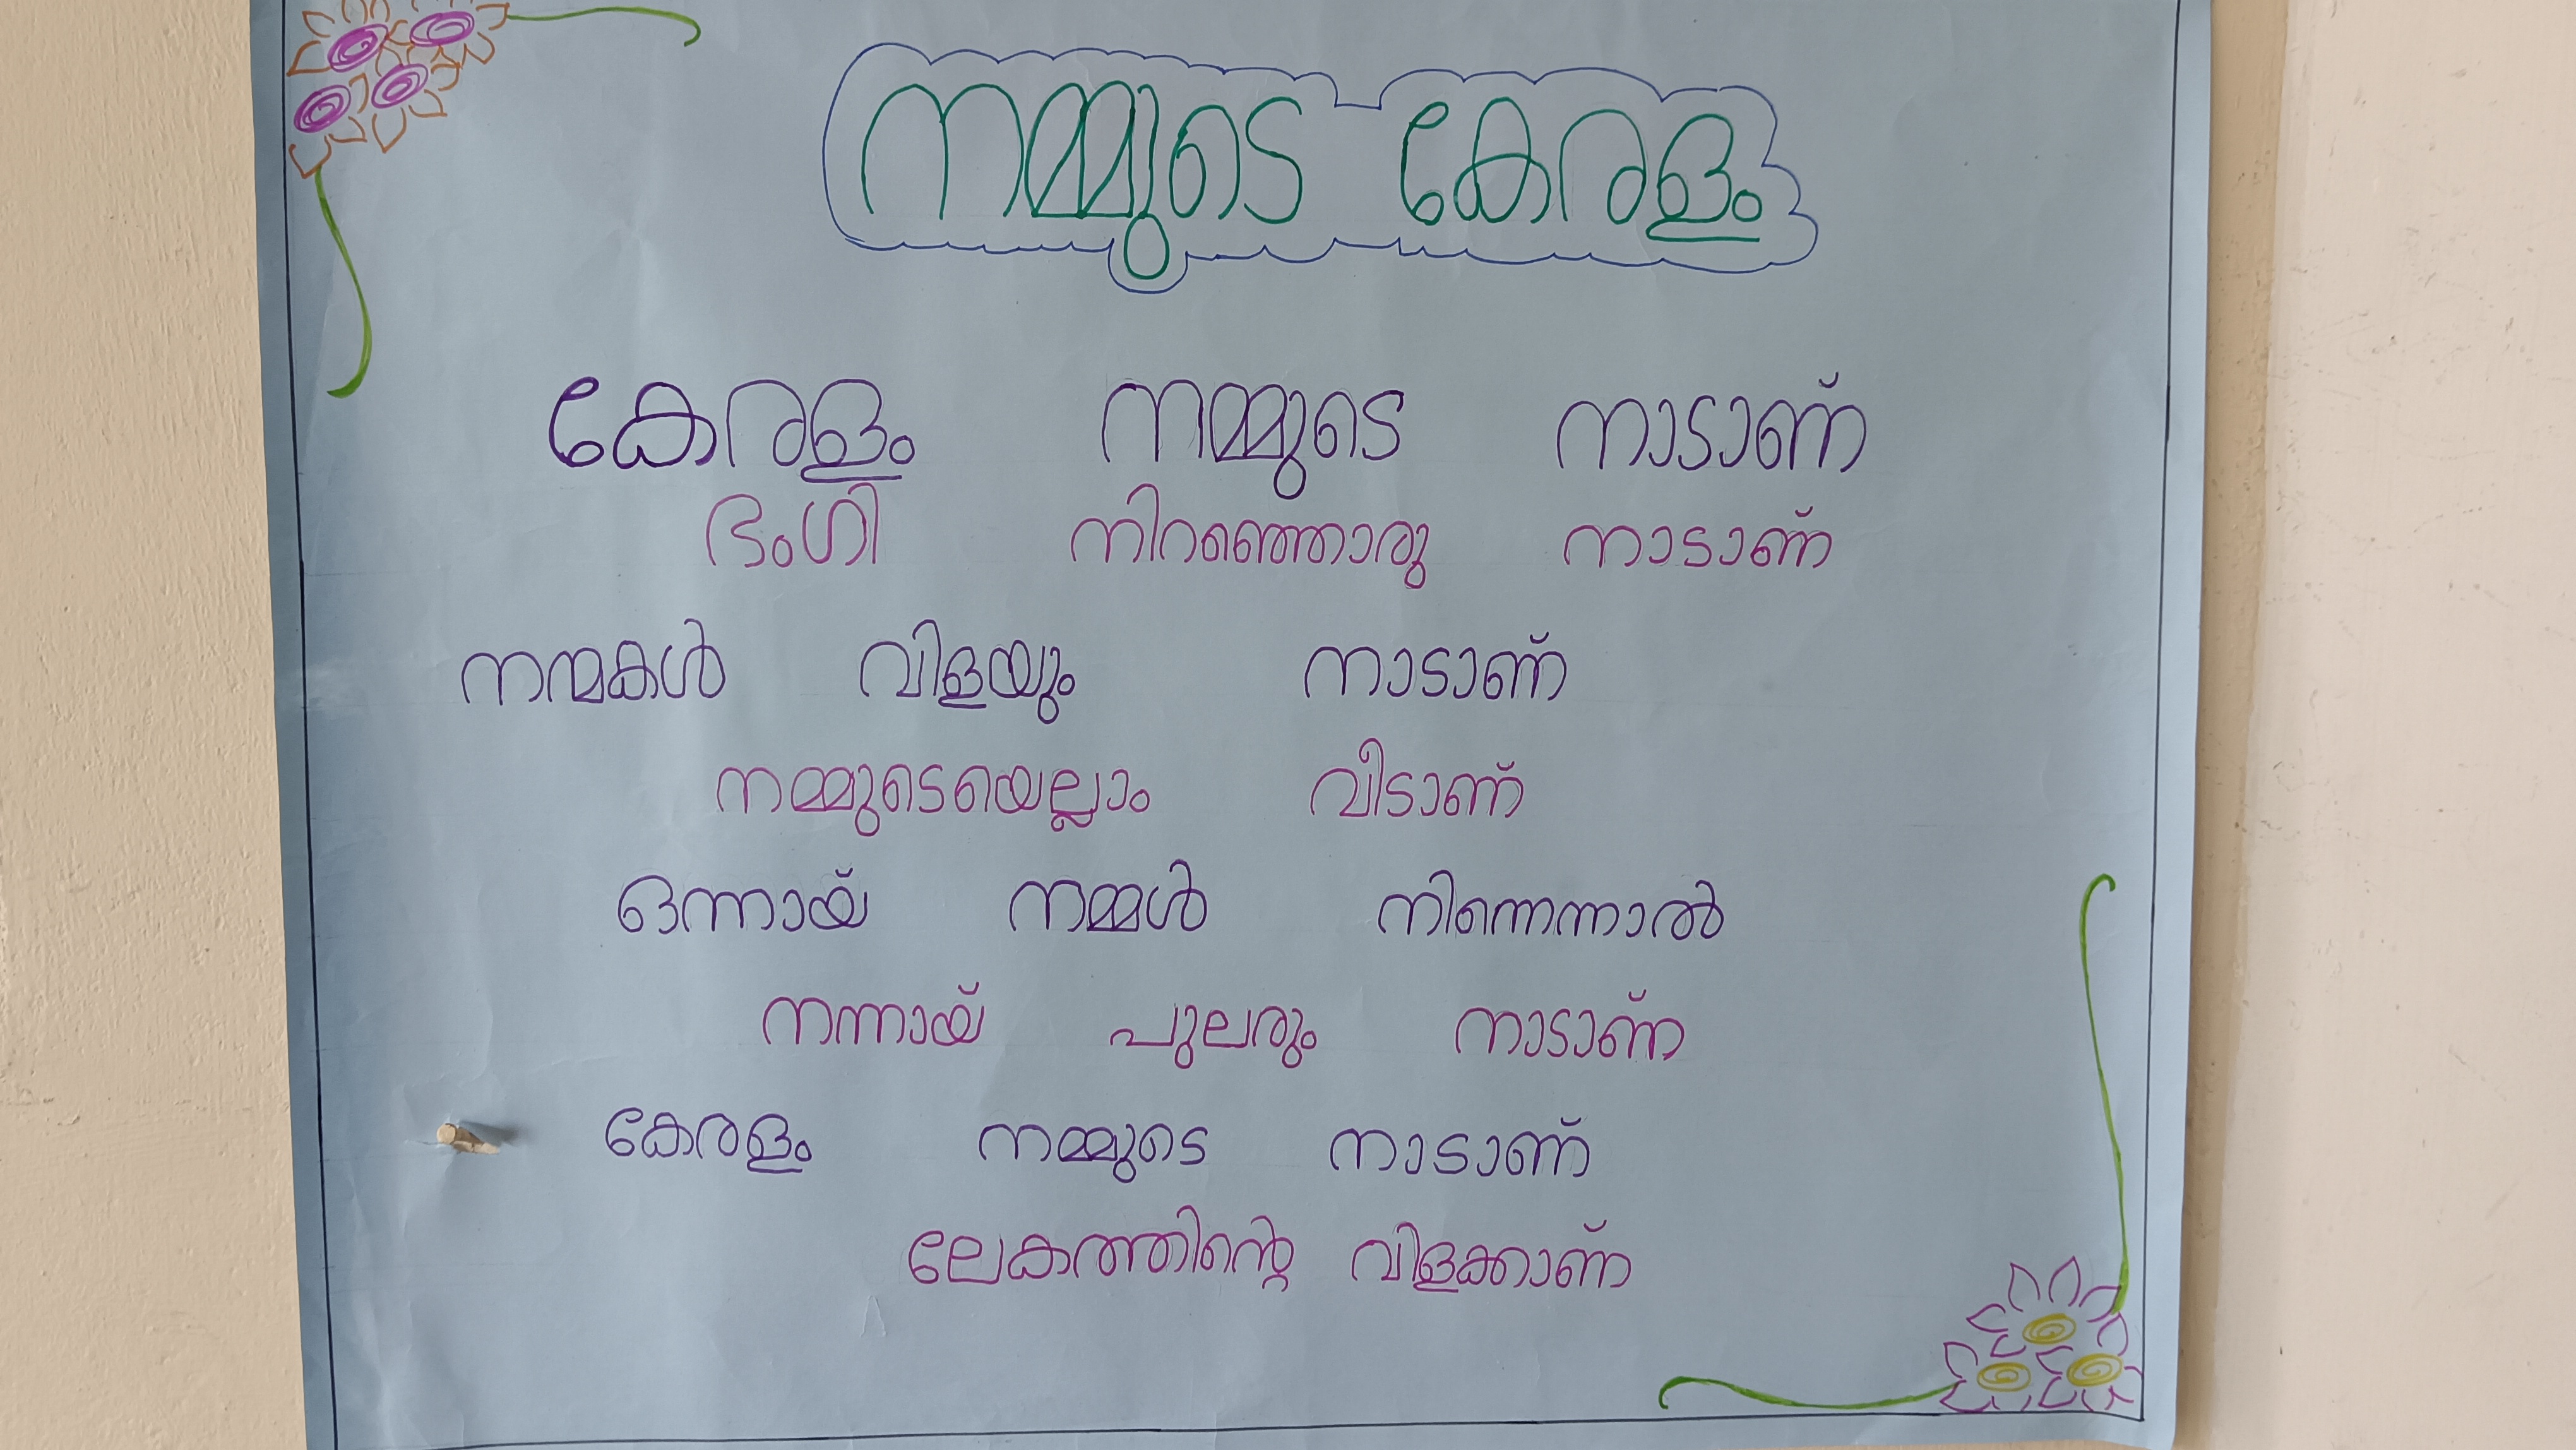 നമ്മുടെ കേരളം
കേരളം നമ്മുടെ നാടാണ്
ഭംഗി നിറഞ്ഞൊരു നാടാണ്
നന്മകൾ വിളയും നാടാണ്
നമ്മുടെയെല്ലാം വീടാണ്
ഒന്നായ് നമ്മൾ നിന്നെന്നാൽ
നന്നായ് പുലരും നാടാണ്
കേരളം നമ്മുടെ നാടാണ്
ലേകത്തിന്റെ വിളക്കാണ്